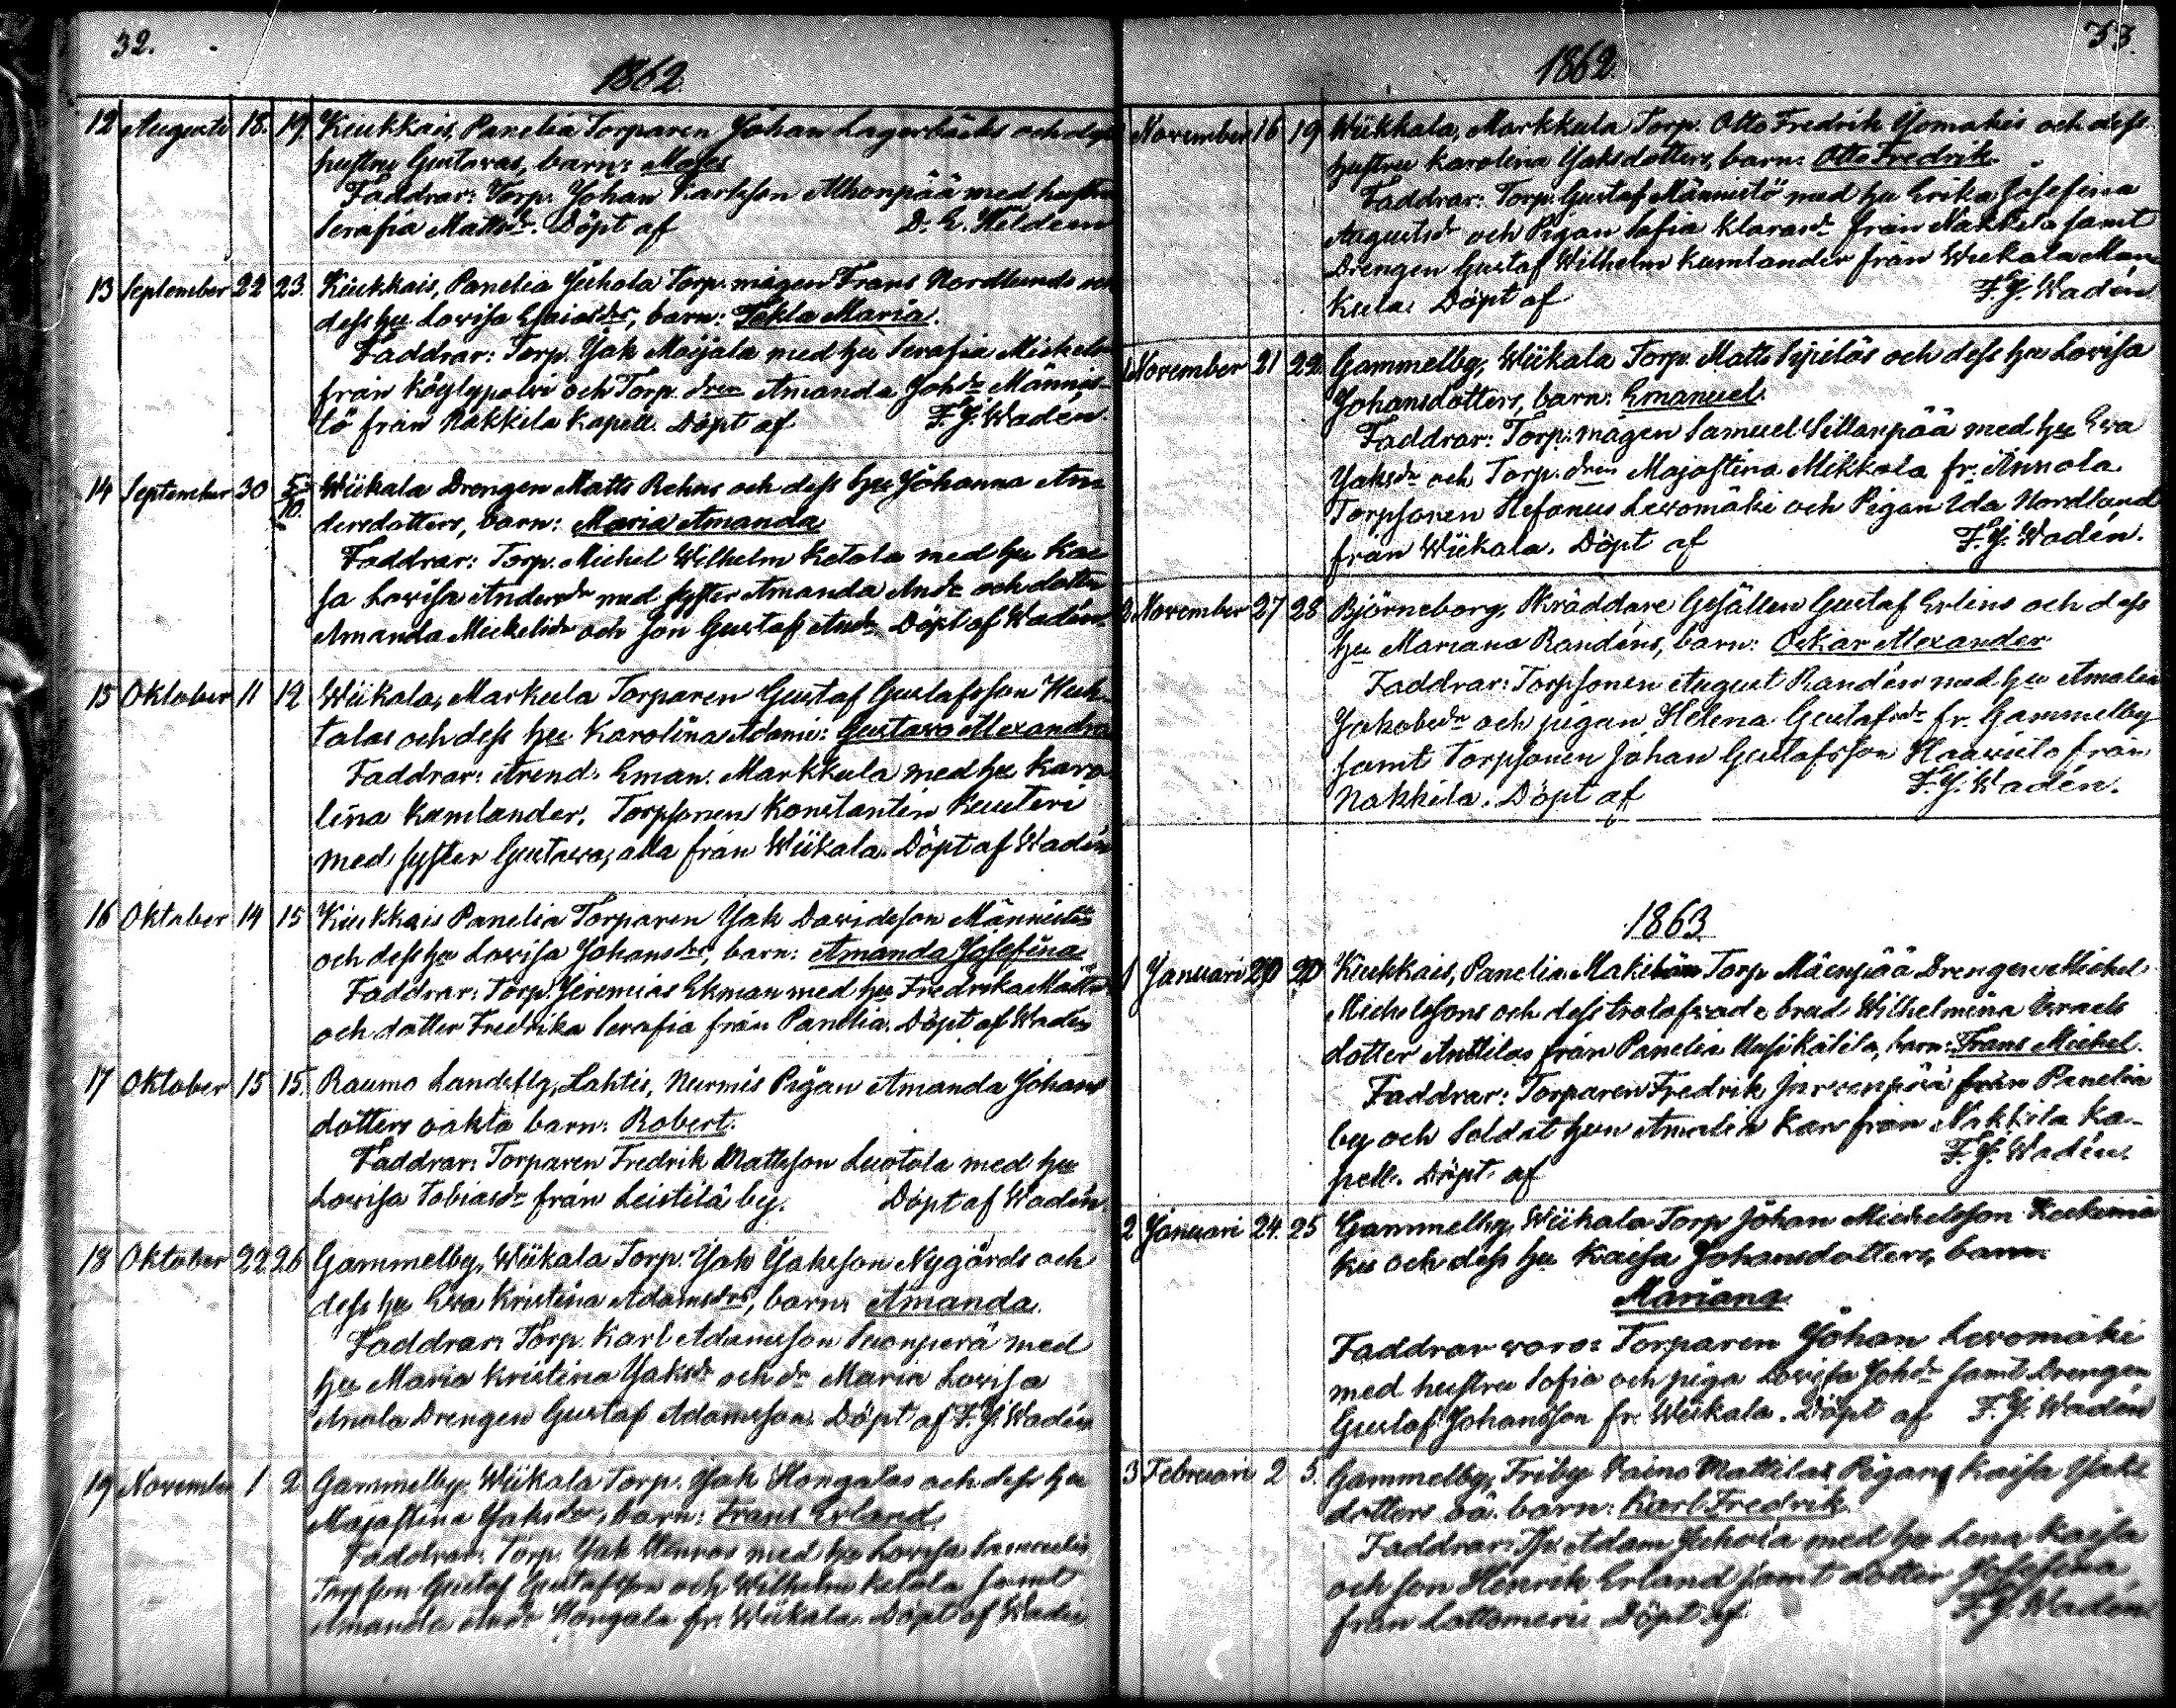 32.
1862.
12 Augusti 18. 19. Kiukkais, Panelia Torparen Johan Lagerbäcks och dess
hustru Gustavas, barn: Moses
Faddrar: Torp. Johan Karlsson Alhonpää med hustru
Serafia Mattsdr. Döpt af D. E. Heldern
13 September 22 23. Kiukkais, Panelia Juhola Torp. mågen Frans Nordlunds och
dess hu Lovisa Esaiasdrs, barn: Tekla Maria.
Faddrar: Torp. Jak Maijala med hu Serafia Mickels
från Köylypolvi och Torp. dren Amanda Johdr Männis-
tö från Nakkila Kapell. Döpt af F. J. Wadén.
14 September 30 5/10. Wiikala Drengen Matts Rehns och dess hu Johanna An-
dersdotters, barn: Maria Amanda
Faddrar: Torp. Mickel Wilhelm Ketola med hu Kai
sa Lovisa Andersdr med syster Amanda Andr och dotter
Amanda Mickelsdr och son Gustaf Döpt af Wadén.
15 Oktober 11 12 Wiikala, Markula Torparen Gustaf Gustafsson Huh-
talas och dess hu Karolina Adamis: Gustava Alexandra
Faddrar: Arend. Eman. Markkula med hu Karo
lina Kumlander. Torpsonen Konstantin Kuuteri
med syster Gustava, alla från Wiikala. Döpt af Wadén
16 Oktober 14 15 Kiukkais Panelia Torparen Jak Davidsson Männistös
och dess hu Lovisa Johansdrs, barn: Amanda Josefina
Faddrar: Torp. Jeremias Ekman med hu Fredrika Matts
och dotter Fredrika Serafia från Panelia. Döpt af Wadén
17 Oktober 15 15. Raumo Landsflg, Lahtis, Nurmis Pigan Amanda Johans
dotters oäkta barn: Robert.
Faddrar: Torparen Fredrik Mattsson Luotola med hu
Lovisa Tobiasdr från Leistilä by. Döpt af Wadén
18 Oktober 22 26 Gammelby, Wiikala Torp. Jak Jaksson Nygårds och
dess hu Eva Kristina Adamsdrs, barn: Amanda.
Faddrar: Torp. Karl Adamsson Suonperä med
hu Maria Kristina Jaksdr och dr Maria Lovisa
Anola Drengen Gustaf Adamsson. Döpt af F. J. Wadén
19 November 1 2 Gammelby Wiikala Torp. Jak Hongalas och dess hu
Majastina Jaksdrs, barn: Frans Erland.
Faddrar: Torp. Jak med hu Lovisa Samuels
Torpson Gustaf Gustafsson och Wilhelm Ketola samt
Amanda Andr Hongala fr. Wiikala. Döpt af Wadén
33.
1862.
November 16 19 Wiikkala, Markkula Torp. Otto Fredrik Isomäkis och dess
hustru Karolina Jaksdotters, barn: Otto Fredrik.
Faddrar: Torp. Gustaf Männistö med hu Erika Josefina
Augustsdr och Pigan Sofia Klarasdr från Nakkila samt
Drengen Gustaf Wilhelm Kumlander från Wiikala Mar-
kula. Döpt af F. J. Wadén
November 21 22. Gammelby, Wiikala Torp. Matts och dess hu Lovisa
Johansdotters, barn: Emanuel.
Faddrar: Torp. mågen Samuel Sillanpää med hu Eva
Jaksdr och Torp. dren Majastina Mikkola fr. Annola
Torpsonen Stefanus Levomäki och Pigan Ida Nordlund
från Wiikala. Döpt af F. J. Wadén.
November 27 28 Björneborg, Skräddare Gesällen Gustaf Erlins och dess
hu Mariana Randéns, barn: Oskar Alexander
Faddrar: Torpsonen August Randén med hu Amalia
Jakobsdr och pigan Helena Gustafsdr fr. Gammelby
samt Torpsonen Johan Gustafsson Haavisto från
Nakkila. Döpt af F. J. Wadén.
1863
1 Januari 20 20 Kiukkais, Panelia Torp Mäenpää Drengen Mickel
Mickelssons och dess trolofvade brud Wilhelmina Israels
dotter Anttilas från Panelia Uusikälilä, barn: Frans Mickel.
Faddrar: Torparen Fredrik Järvenpää från Panelia
by och Soldat hun Amalia Kan från Nakkila Ka-
pell. Döpt af F. J. Wadén.
2 Januari 24. 25 Gammelby, Wiikala Torp Johan Mickelsson
och dess hu Kaisa Johansdotters, barn:
Mariana
Faddrar voro: Torparen Johan Levomäki
med hustru Sofia och piga Lovisa Johdr samt Drengen
Gustaf Johansson fr. Wiikala. Döpt af F. J. Wadén
3 Februari 2 5. Gammelby, Friby Mattilas Pigans Kaisa Jaks
dotters oä. barn: Karl Fredrik.
Faddrar: Adam Juhola med hu Lena Kaisa
och son Henrik Erland samt dotter Josefina
från Lattomeri Döpt af F. J. Wadén